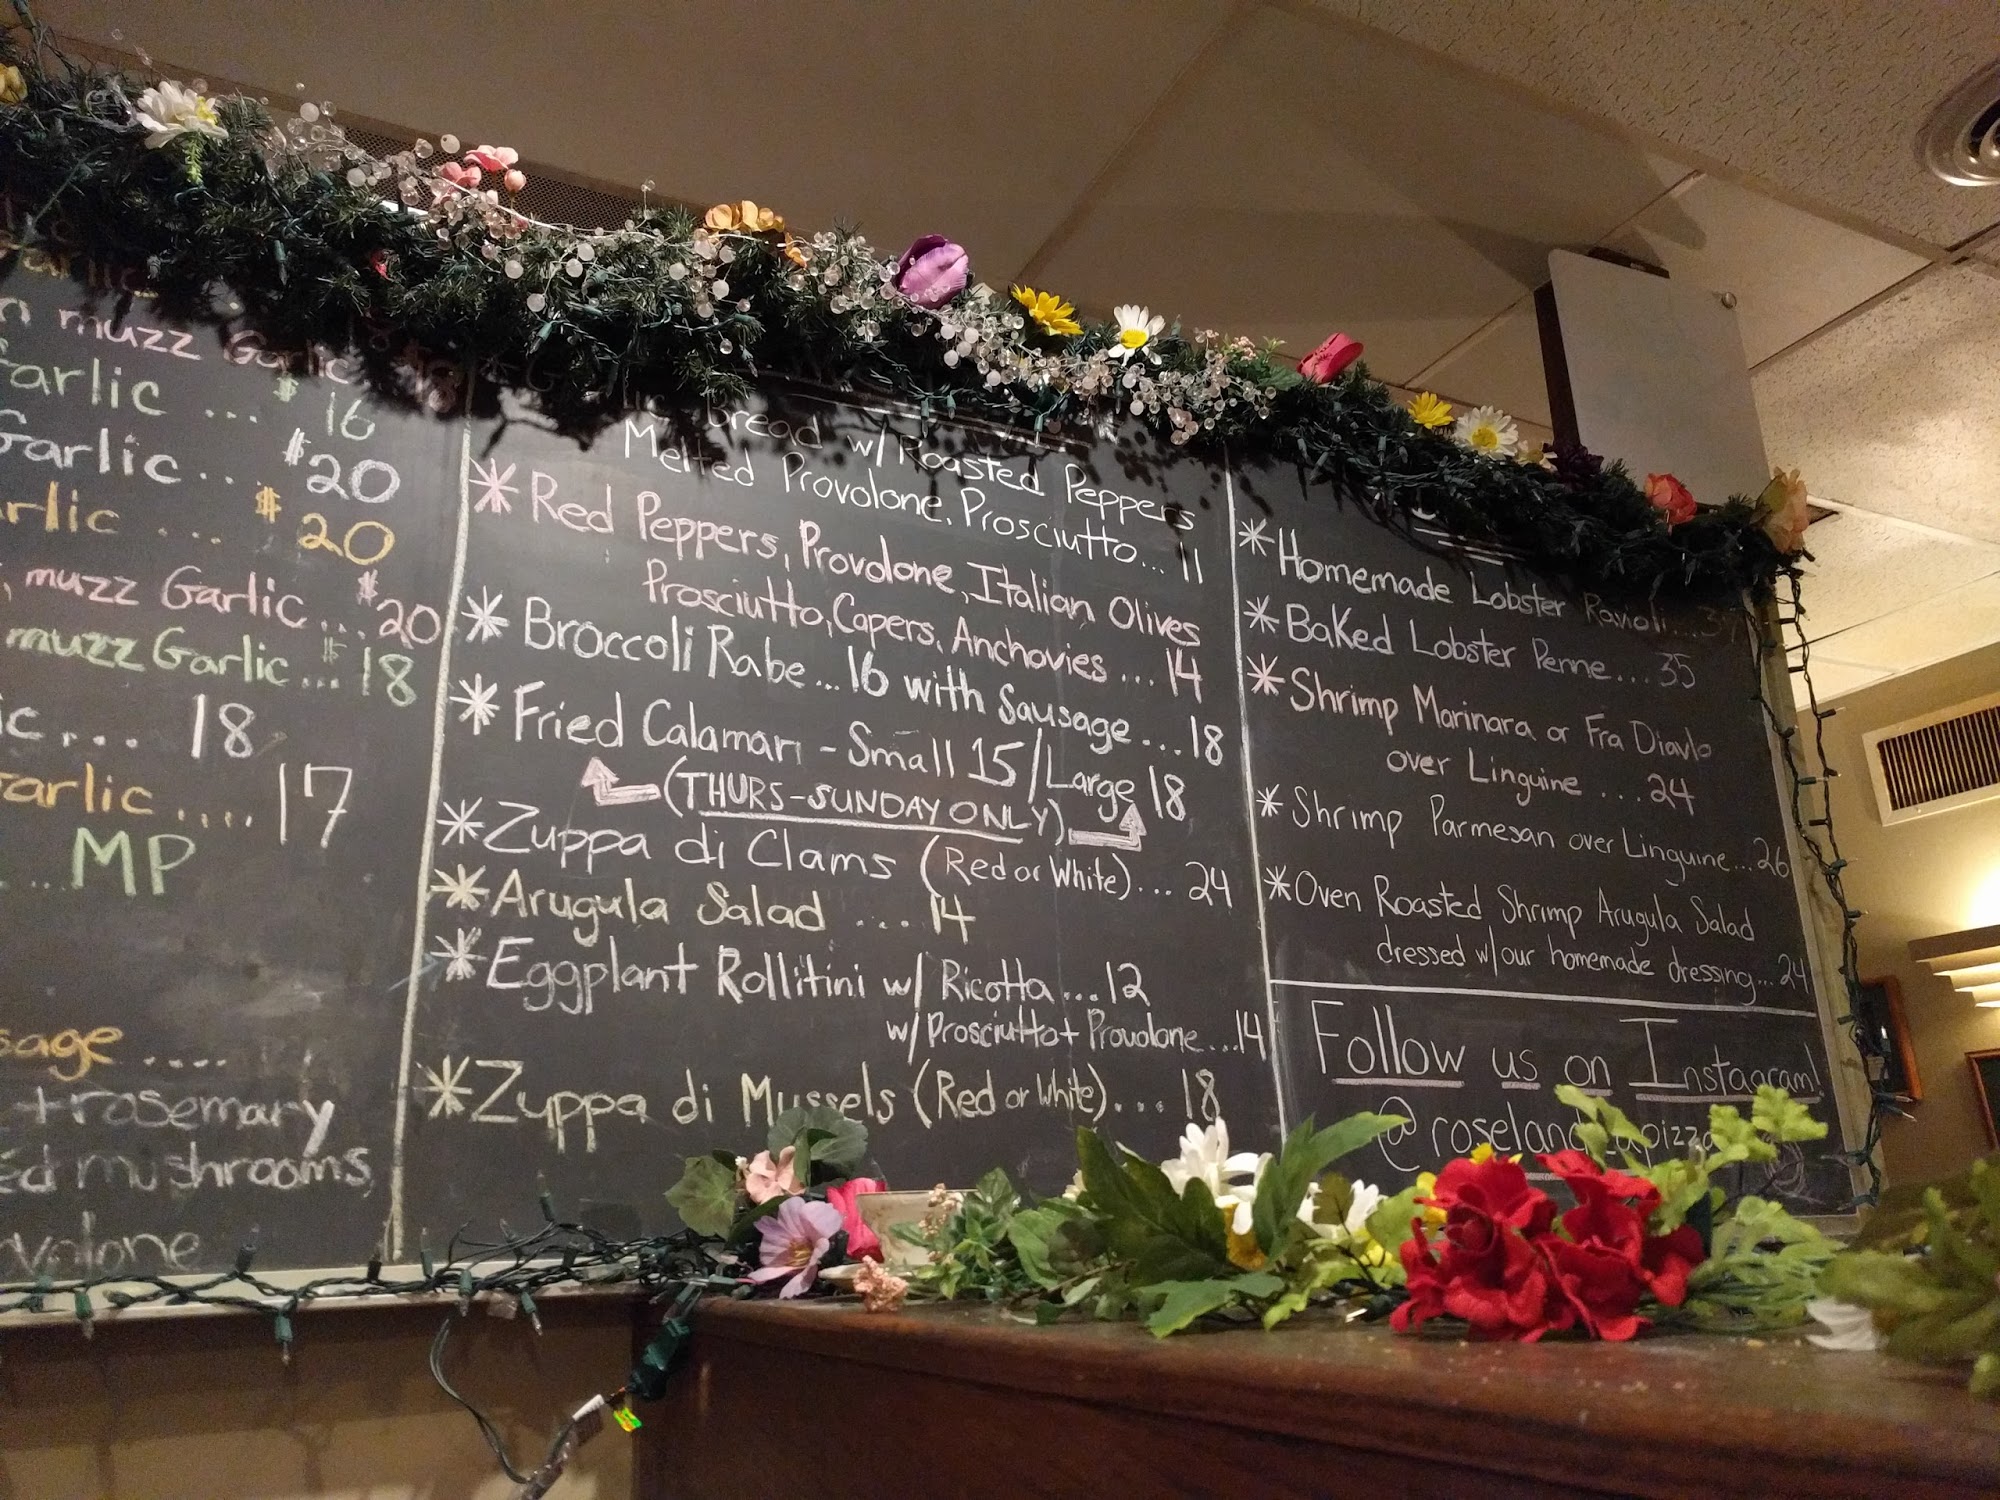 muzz Garlic
Garlic ... $16
Garlic... $20
$20
muzz Garlic ... $20
muzz Garlic ... $18
... 18
Garlic .... 17
... MP
....
+ rosemary
mushrooms,
bread w/ Roasted Peppers
Melted Provolone, Prosciutto... 11
* Red Peppers, Provolone, Italian Olives
Prosciutto, Capers, Anchovies ... 14
* Broccoli Rabe ... 16 with Sausage ... 18
* Fried Calamari - Small 15 / Large 18
(THURS-SUNDAY ONLY)
* Zuppa di Clams (Red or White)... 24
* Arugula Salad .... 14
* Eggplant Rollitini w/ Ricotta ... 12
w/ Prosciutto + Provolone ... 14
* Zuppa di Mussels (Red or White)... 18
* Homemade Lobster Ravioli...
* Baked Lobster Penne... 35
* Shrimp Marinara or Fra Diavlo
over Linguine ... 24
* Shrimp Parmesan over Linguine... 26
* Oven Roasted Shrimp Arugula Salad
dressed w/our homemade dressing... 24
Follow us on Instagram!